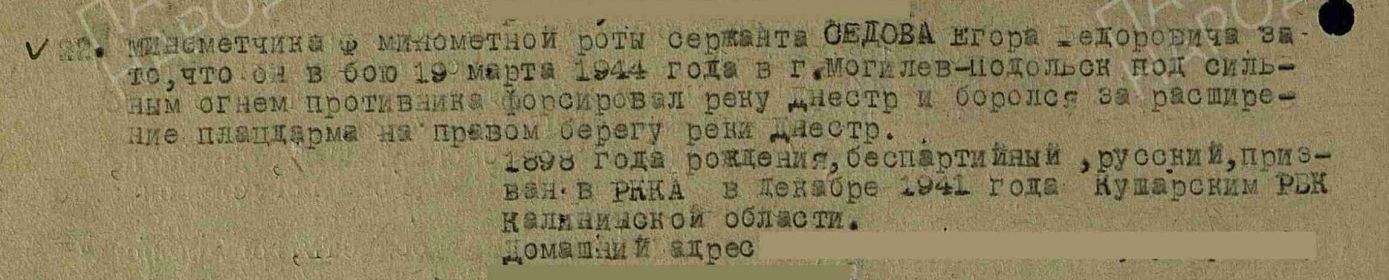 22. минометчика ф минометной роты сержанта СЕДОВА Егора Федоровича за-
то, что он в бою 19 марта 1944 года в г.Могилев-Подольск под силь-
ным огнем противника форсировал реку Днестр и боролся за расшире-
ние плацдарма на правом берегу реки Днестр.
1898 года рождения, беспартийный , русский, приз-
ван в РККА в декабре 1941 года Кушарским РВК
Калининской области.
Домашний адрес